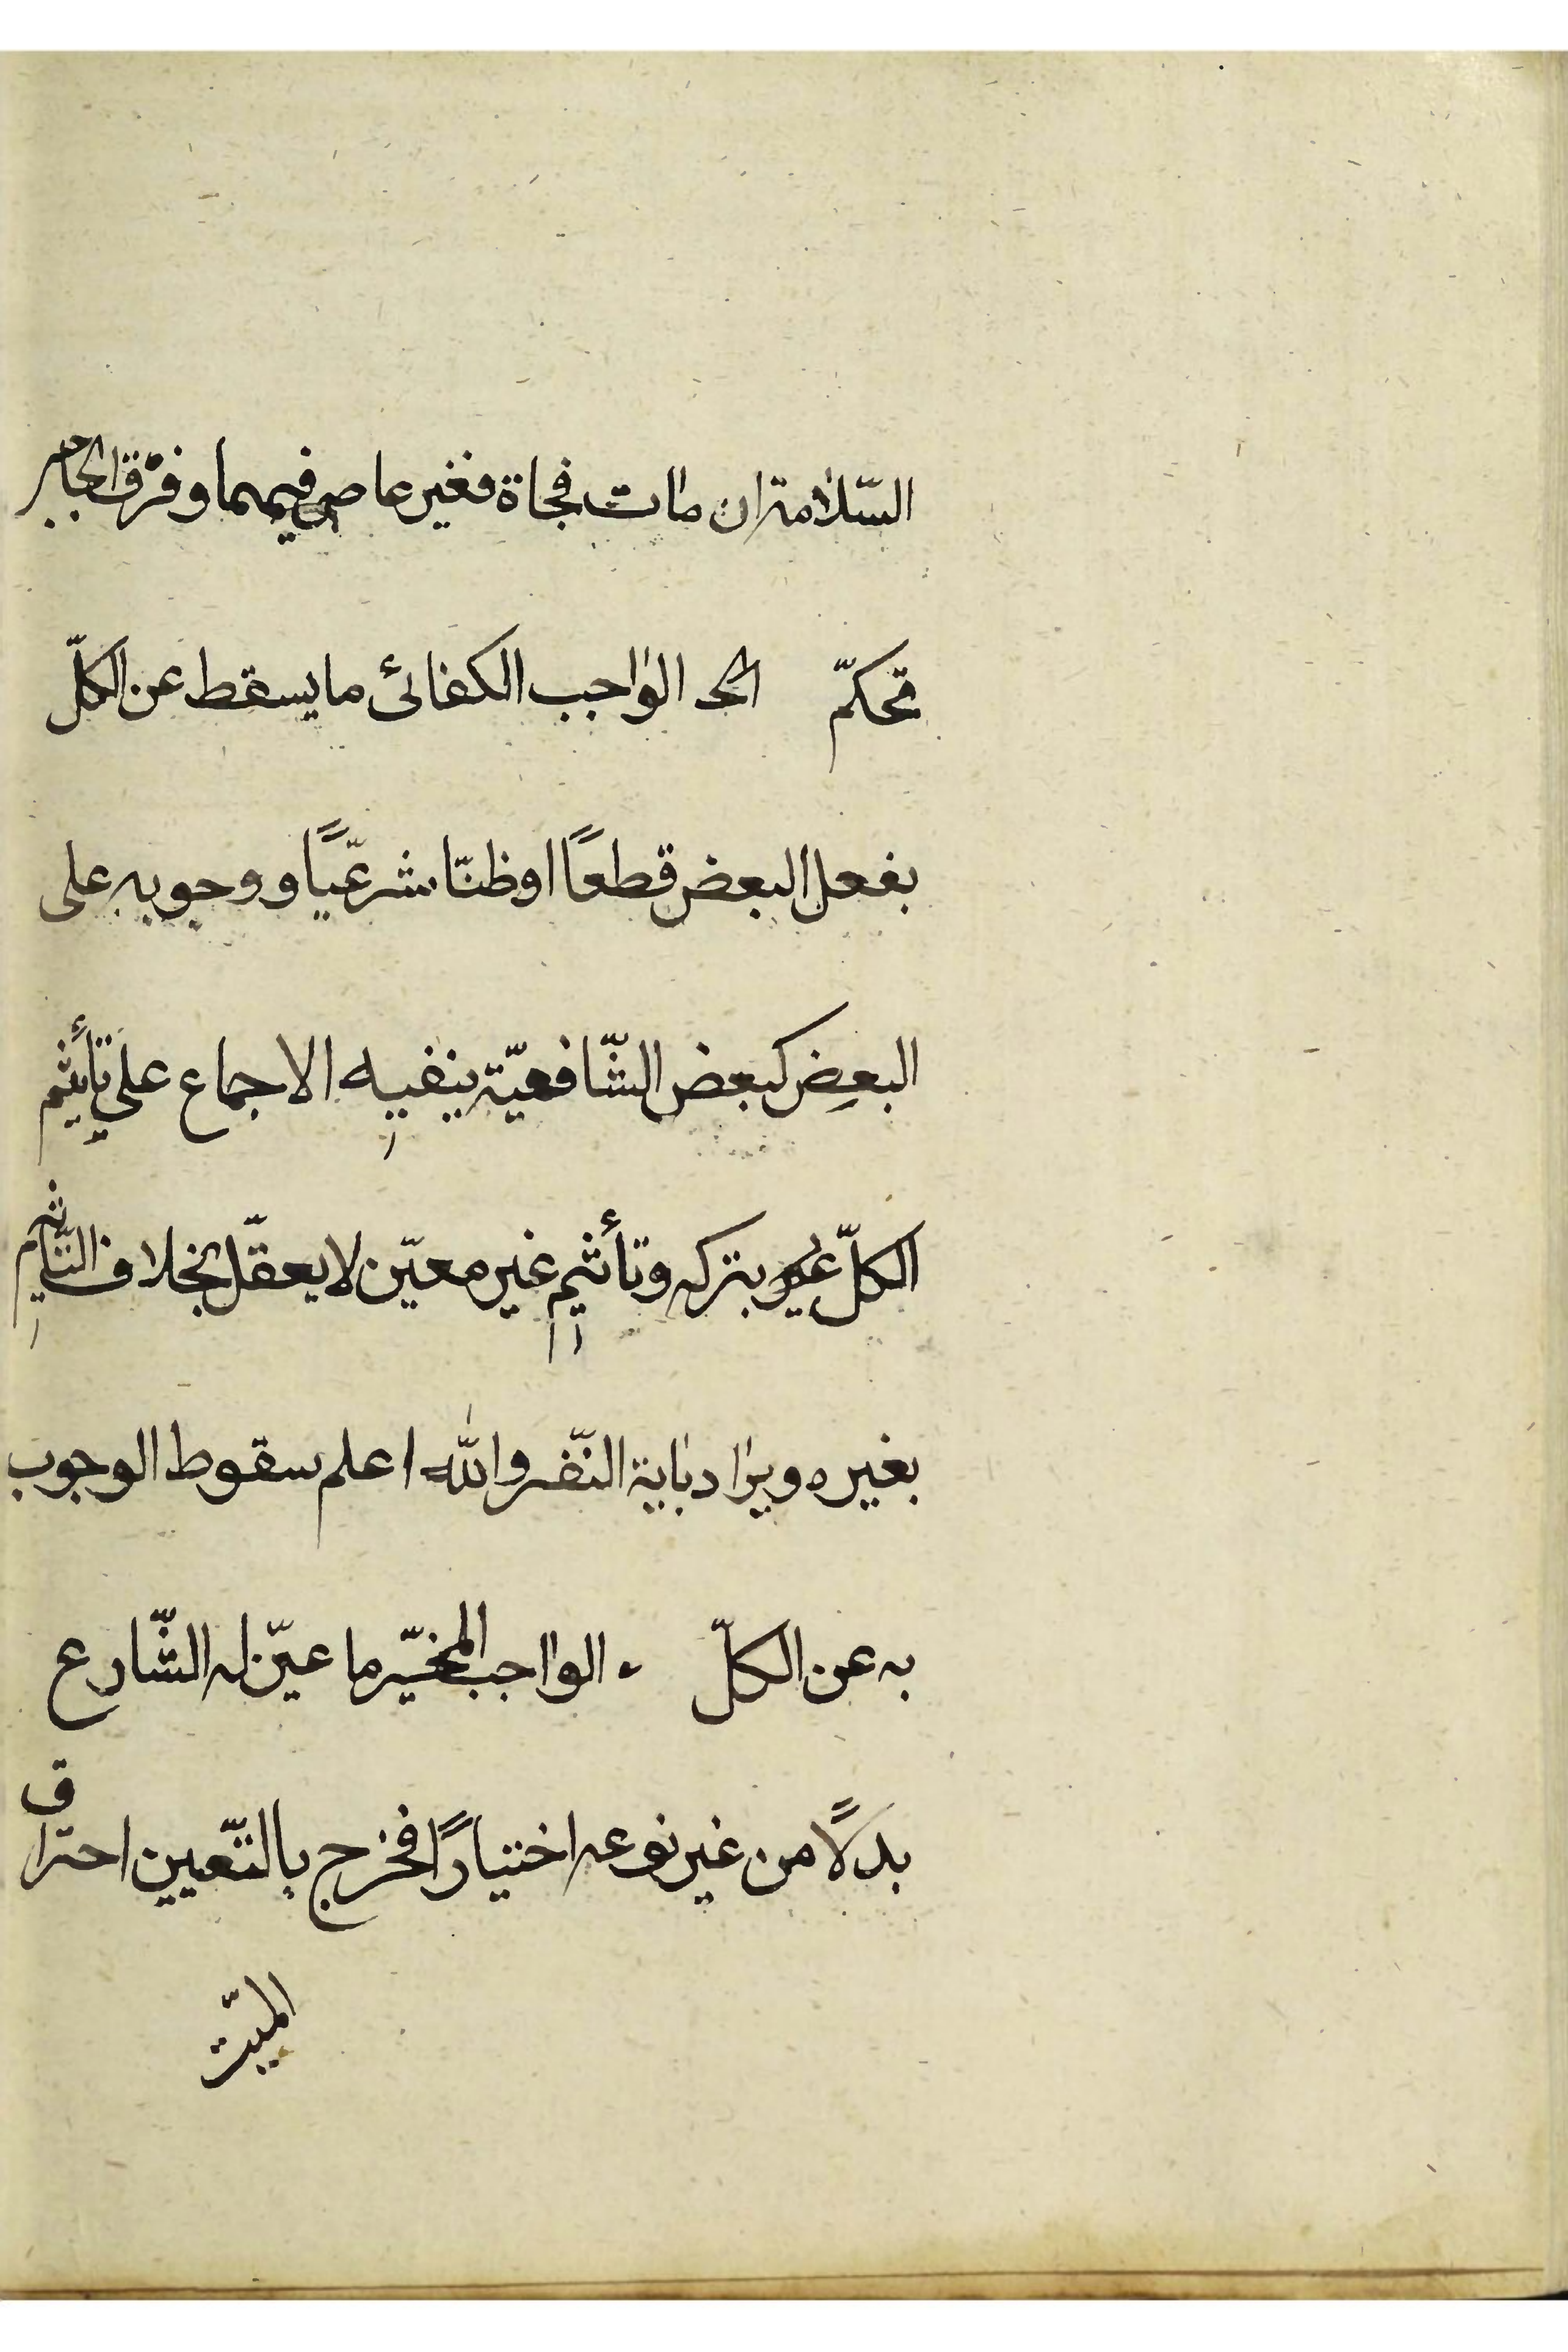 السّلامة ان مات فجاة فغير عاص فيهما وفرّق الحاجبى
تحكمّ الواجب الكفائى ما يسقط عن الكلّ
بفعل البعض قطعًا او ظنّا شرعيّا و وجوبه على
البعض كبعض الشّافعيّة ينفيه الاجماع على تأثيم
الكلّ بتركه وتأثيم غير معيّن لا يعقل بخلاف التّأثيم
بغيره ويراد بآية النّفر والله اعلم سقوط الوجوب
به عن الكلّ الواجب المخيّر ما عيّن له الشّارع
بدلًا من غير نوعه اختيارًا فخرج بالتّعيين احتراق
الميّت